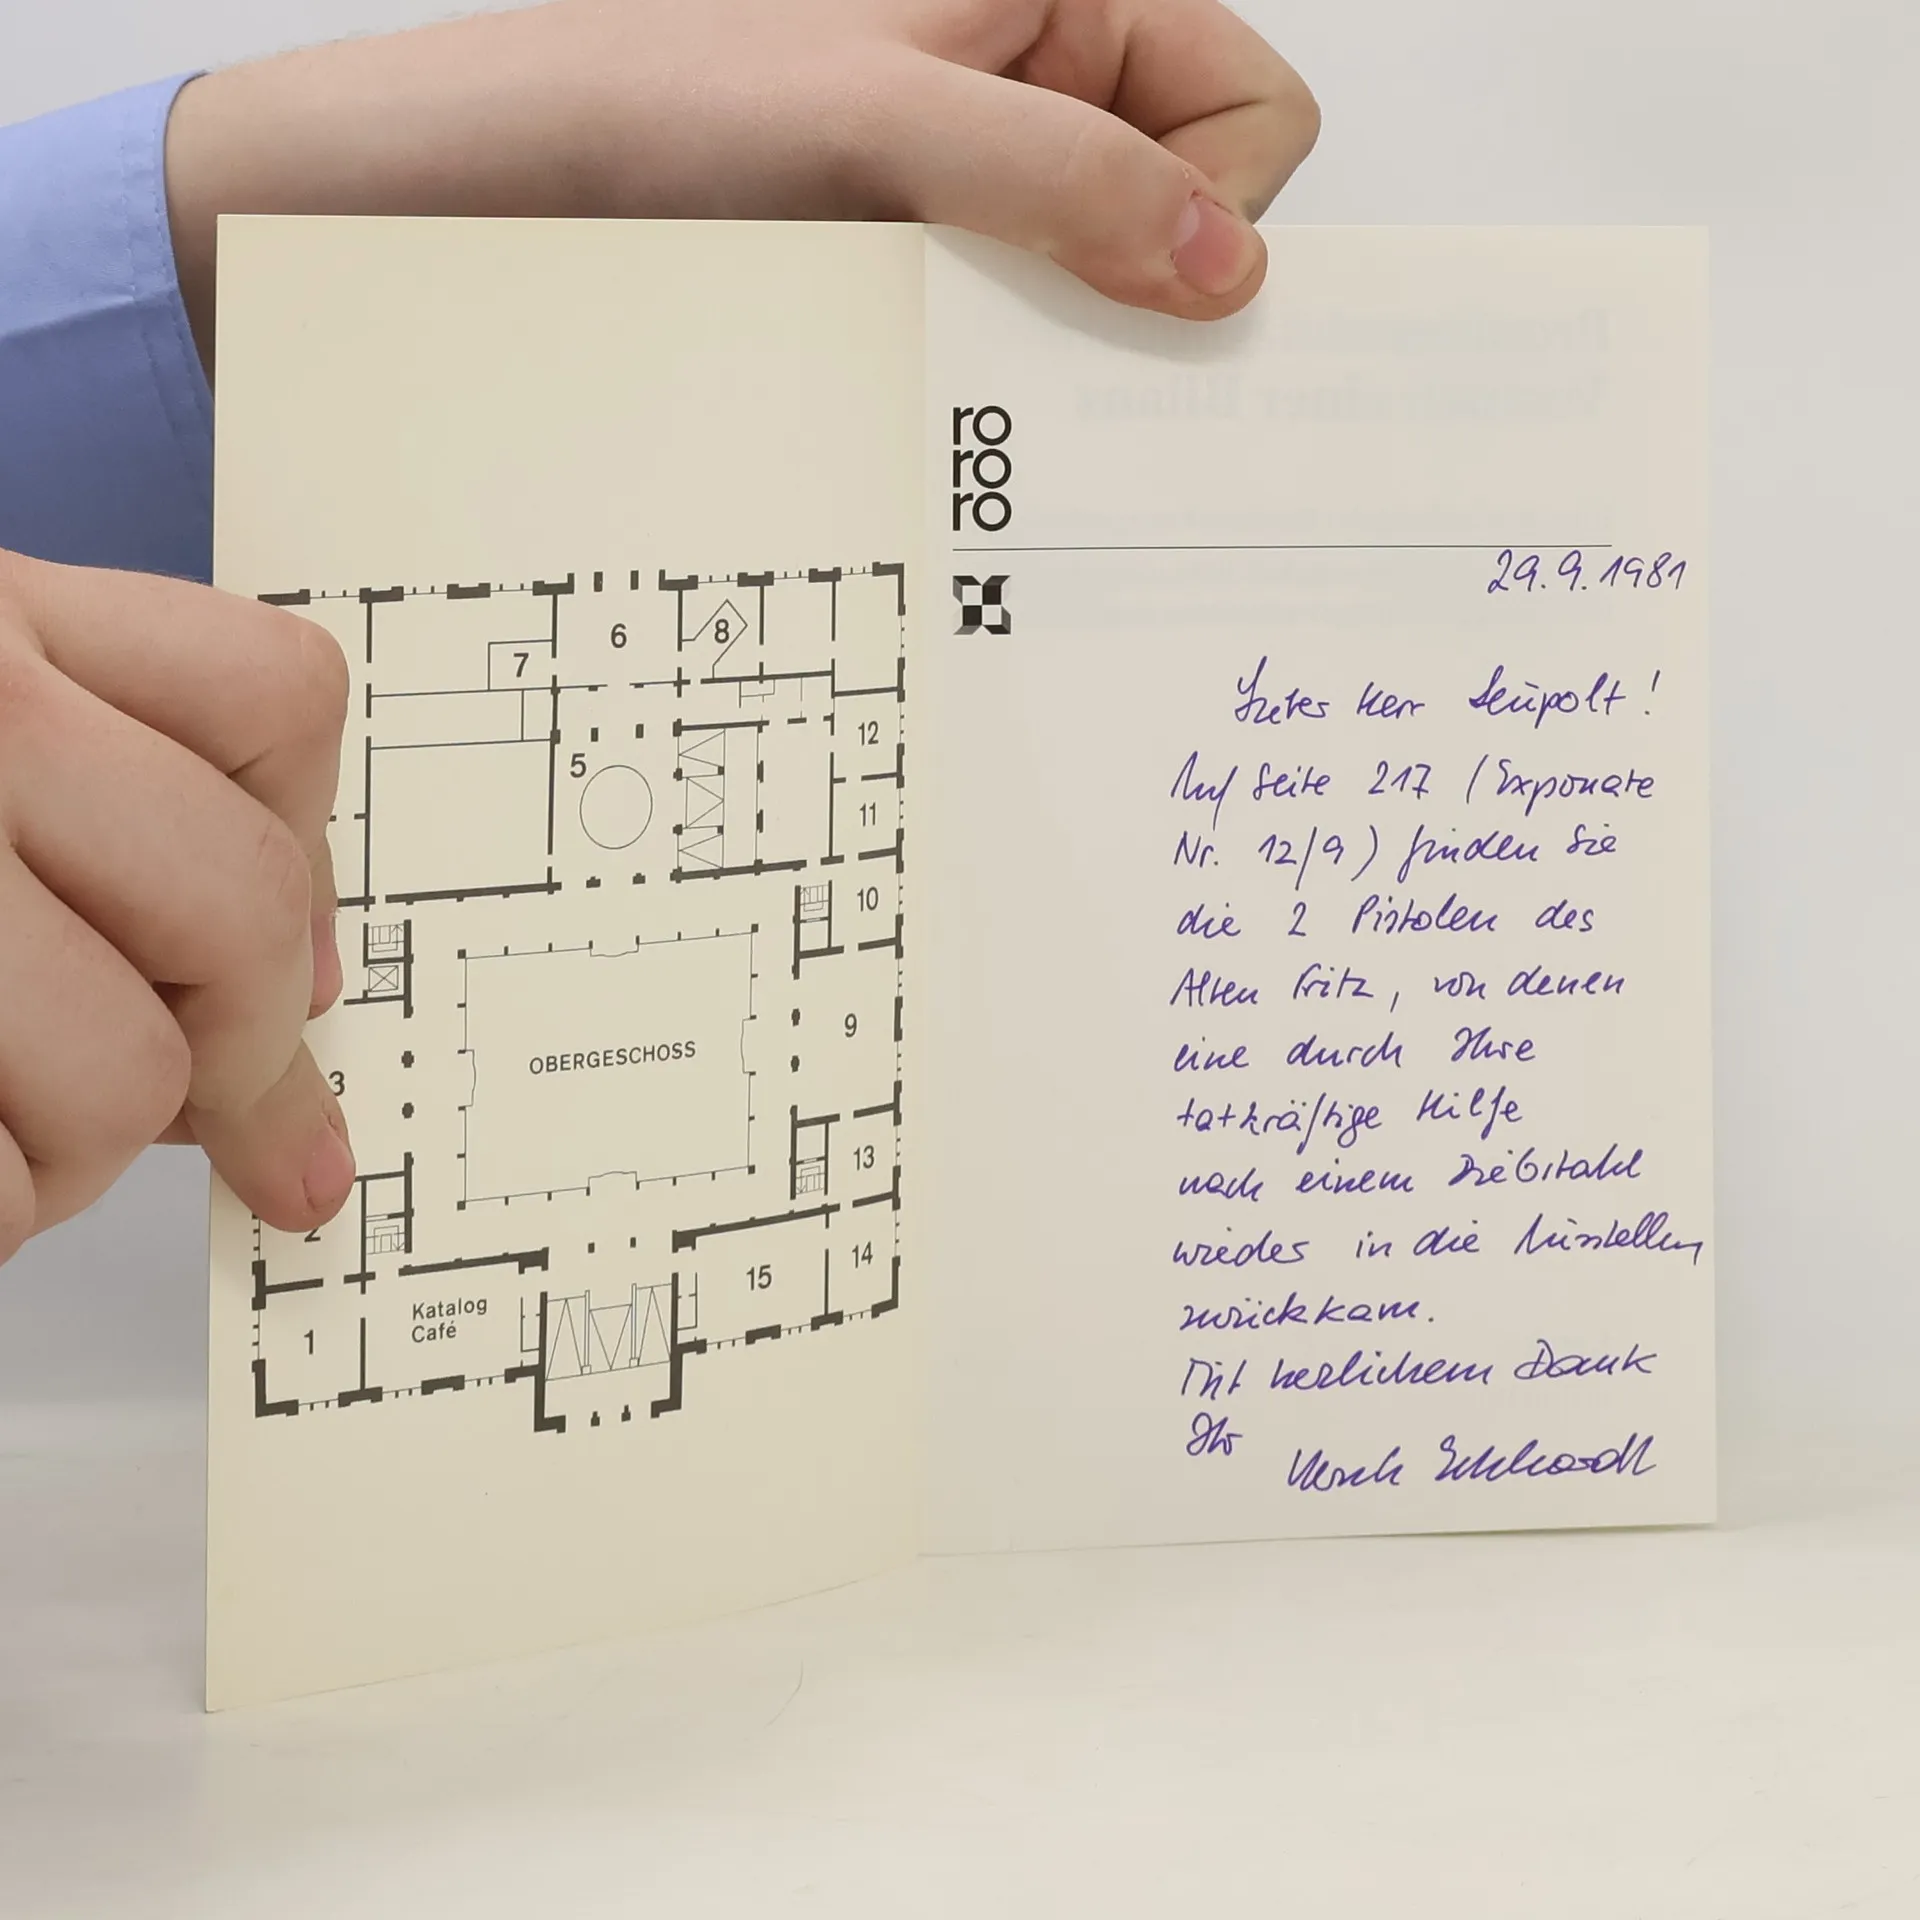 6
8
7
12
5
11
10
9
OBERGESCHOSS
3
13
2
14
15
Katalog
Café
1
ro
ro
ro
29.9.1981
Lieber Herr Leupolt!
Auf Seite 217 (Exponate
Nr. 12/9) finden Sie
die 2 Pistolen des
Alten Fritz, von denen
eine durch Ihre
tatkräftige Hilfe
nach einem Diebstahl
wieder in die Ausstellung
zurückkam.
Mit herzlichem Dank
Ihr
Ulrich Eckhardt